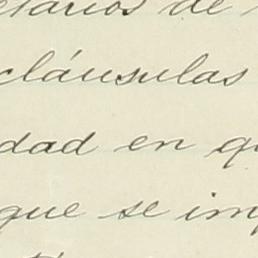 etarios de
cláusulas
dad en qu
que se imp